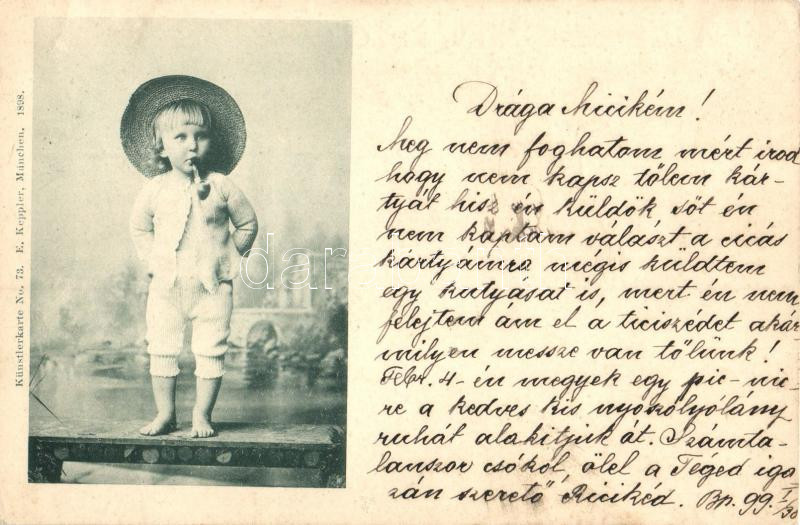 Künstlerkarte No. 73. E. Keppler, München. 1898.
Drága Micikém!
Meg nem foghatom mért irod
hogy nem kapsz tőlem kár-
tyát hisz én küldök, sőt én
nem kaptam választ a cicás
kártyámra mégis küldtem
egy kutyásat is, mert én nem
felejtem ám el a ticiszédet akár
milyen messze van tőlünk!
Febr. 4-én megyek egy pic-nic-
re a kedves kis nyoszólyólány
ruhát alakitjuk át. Számta-
lanszor csókol, ölel a Téged iga
zán szerető Ricikéd. Bp. 99. I/30